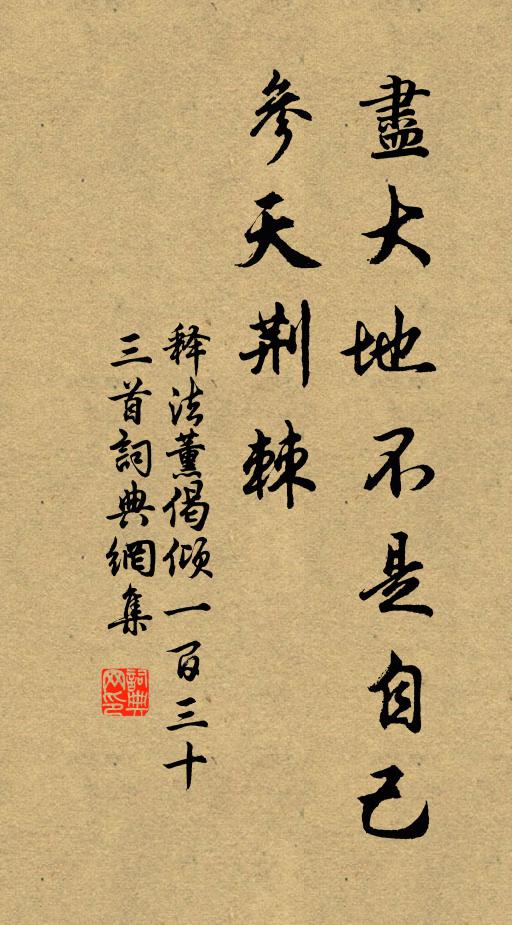 盡大地不是自己
參天荆棘
释法薰偈倾一百三十
三首詞典網集
詞典网印